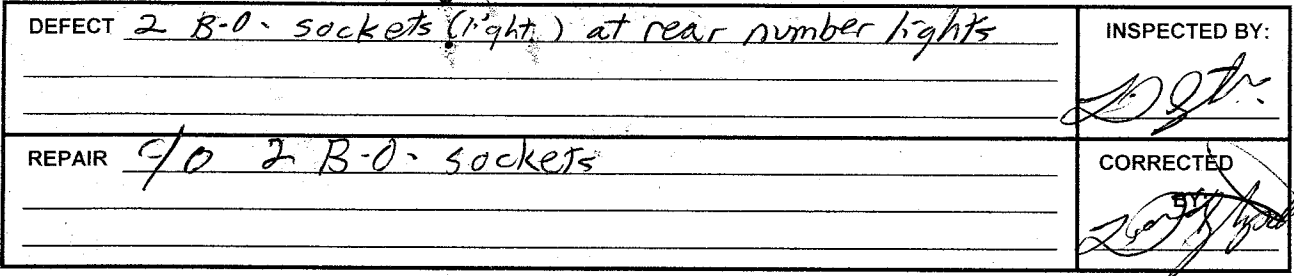 DEFECT 2 B-O- sockets (light) at rear number lights
INSPECTED BY:
REPAIR c/o 2 B-O- sockets
CORRECTED
BY: